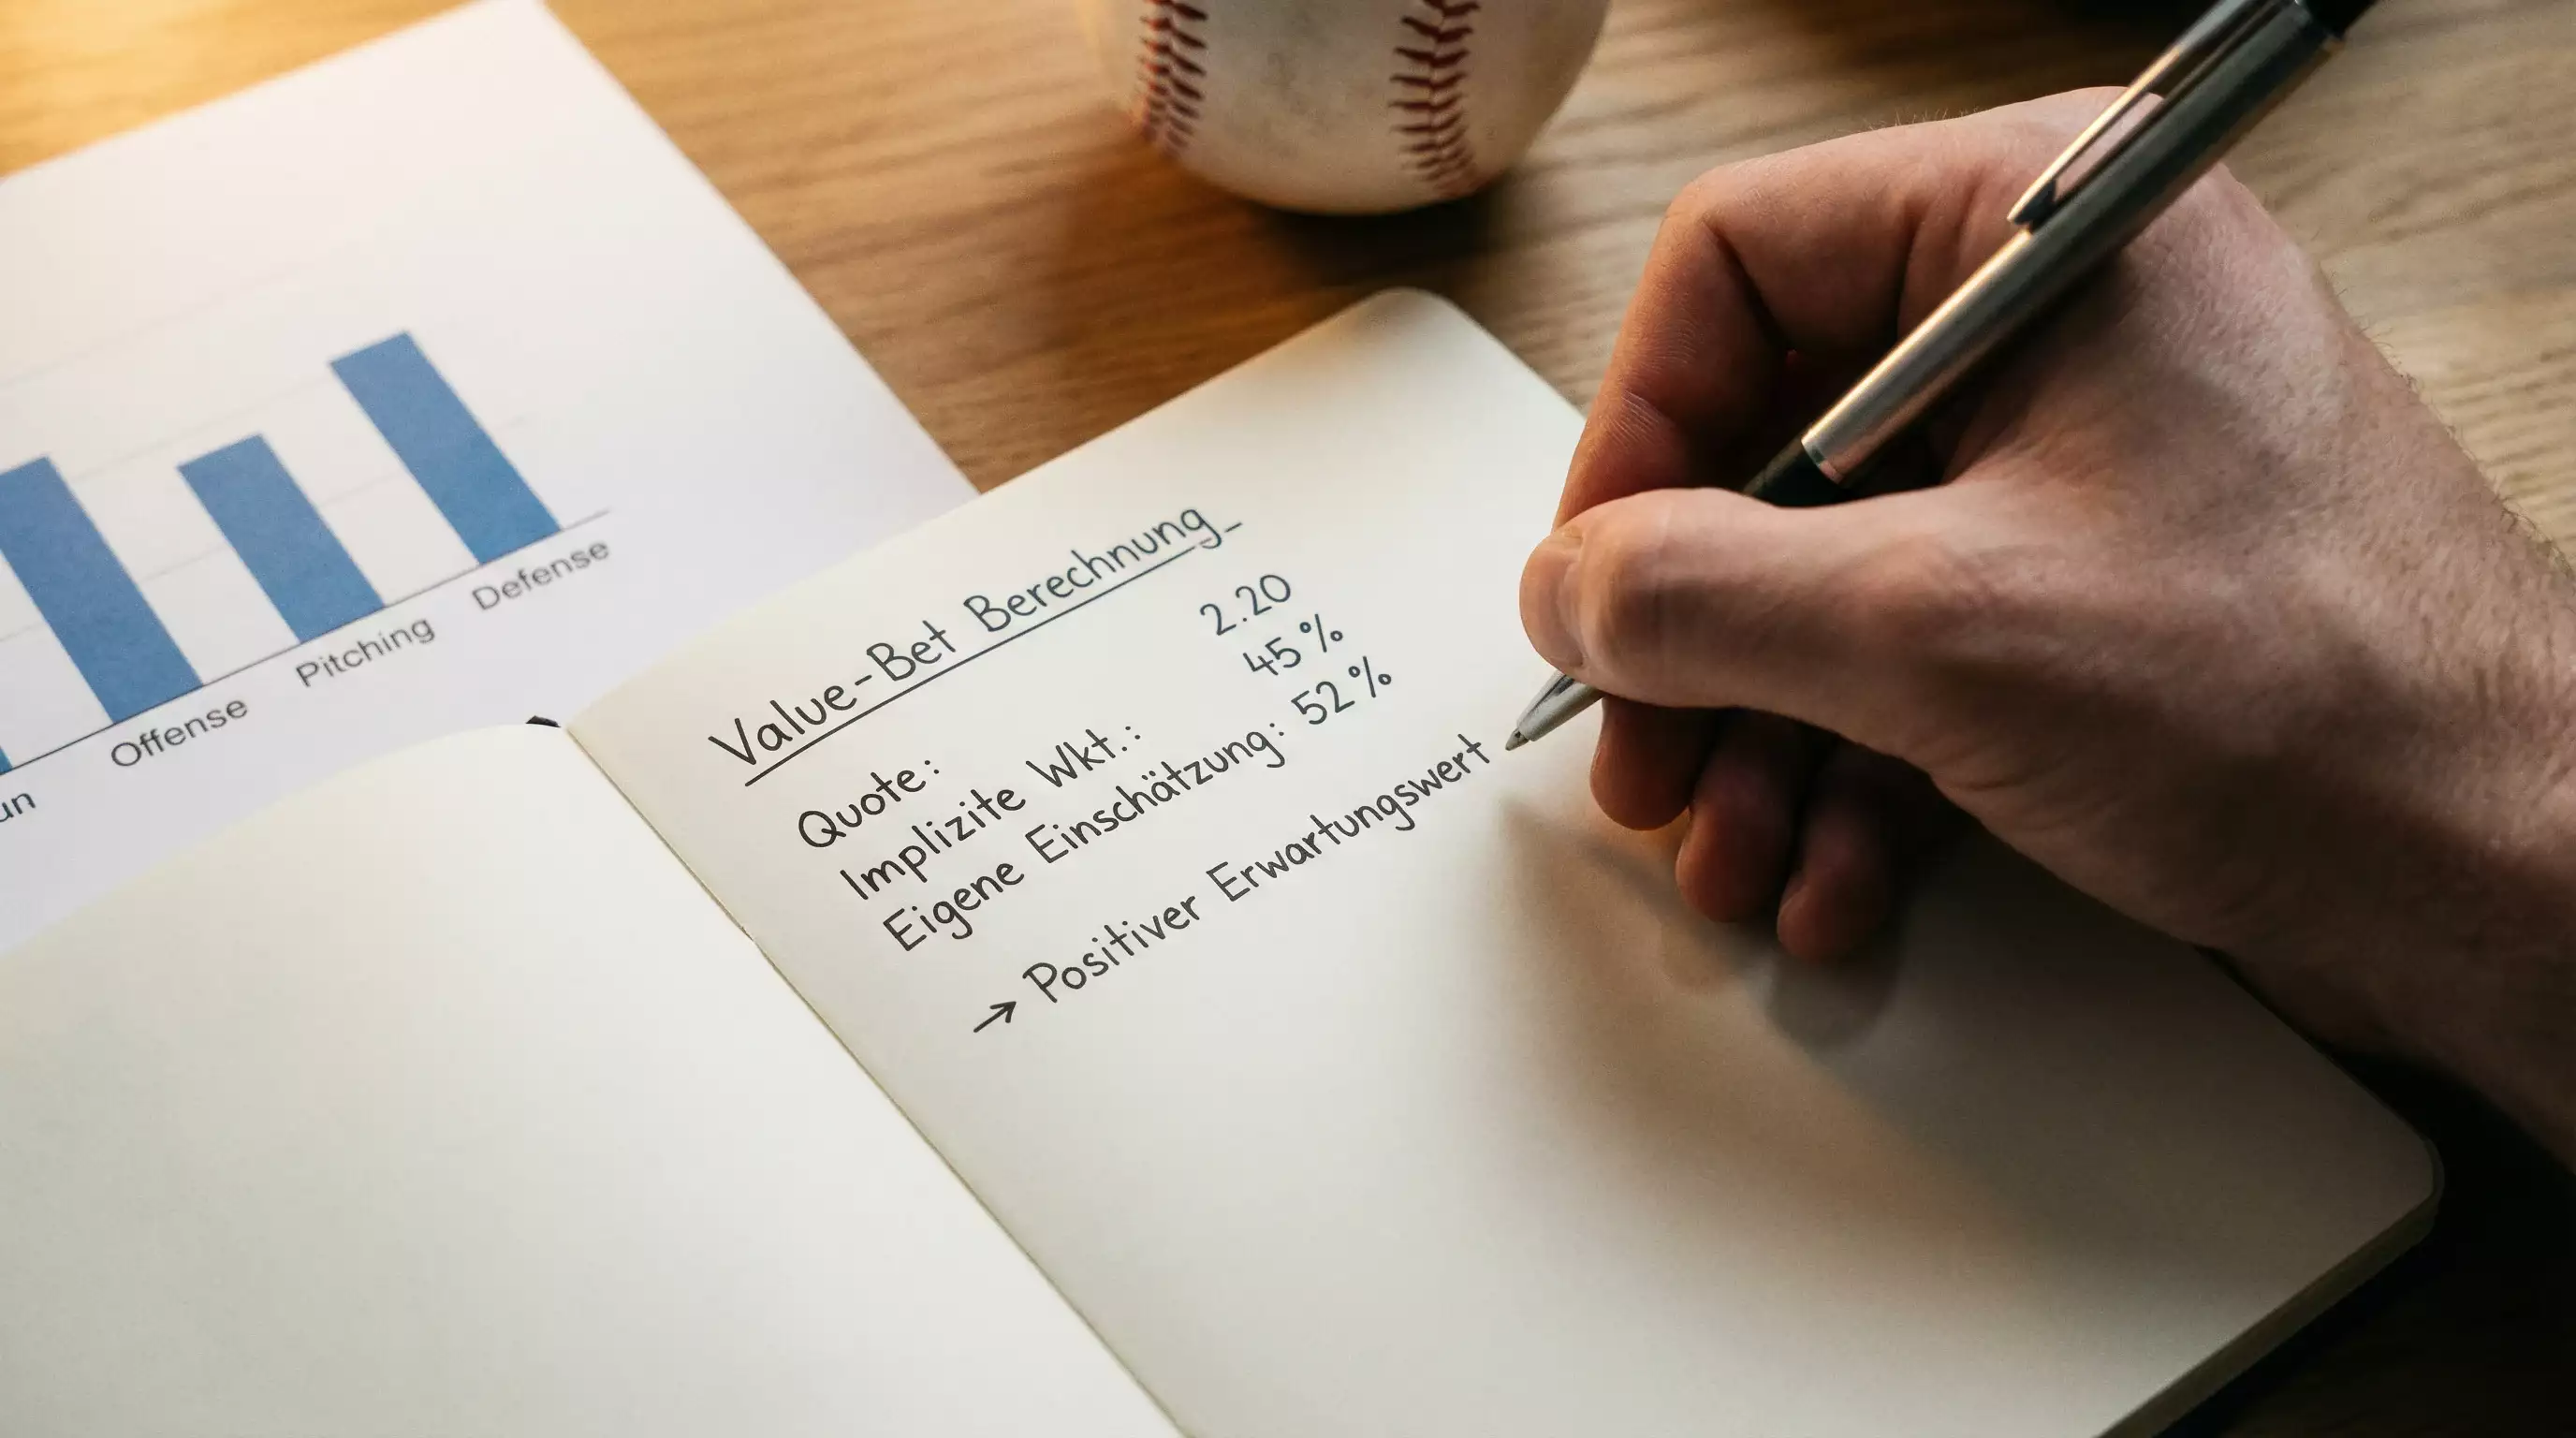 un
Offense
Pitching
Defense
Value-Bet Berechnung
Quote: 2.20
Implizite Wkt.: 45%
Eigene Einschätzung: 52%
→ Positiver Erwartungswert